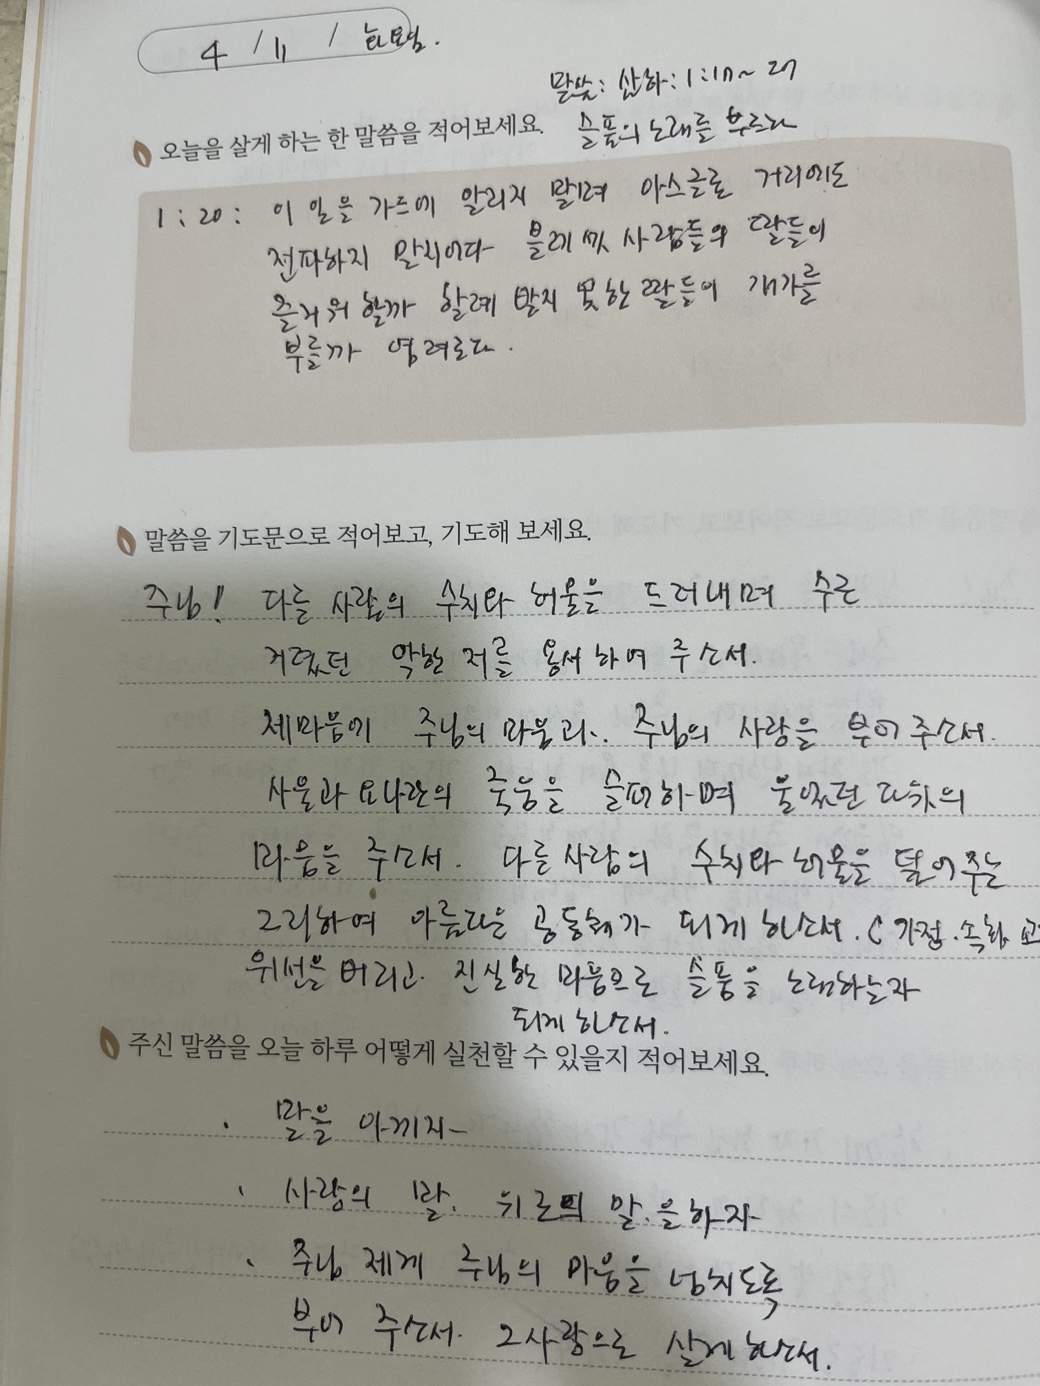 4 / 11 / 화요일.
말씀: 삼하: 1:17~27
오늘을 살게 하는 한 말씀을 적어보세요.
슬픔의 노래를 부르다
1:20: 이 일을 가드에 알리지 말며 아스글론 거리에도
전파하지 말지어다 블레셋 사람들의 딸들이
즐거워 할까 할례 받지 못한 딸들이 개가를
부를까 염려로다.
말씀을 기도문으로 적어보고, 기도해 보세요.
주님! 다른 사람의 수치와 허물을 드러내며 수근
거렸던 악한 저를 용서하여 주소서.
제마음에 주님의 마음과.. 주님의 사랑을 부어 주소서.
사울과 요나단의 죽음을 슬퍼하며 울었던 다윗의
마음을 주소서. 다른사람의 수치와 허물을 덮어주는
그리하여 아름다운 공동체가 되게 하소서. (가정.속회.교
위선을 버리고. 진실한 마음으로 슬픔을 노래하는자
되게 하소서.
주신 말씀을 오늘 하루 어떻게 실천할 수 있을지 적어보세요.
· 말을 아끼자-
· 사랑의 말. 위로의 말.을하자
· 주님 제게 주님의 마음을 넘치도록
부어 주소서. 그사랑으로 살게 하소서.